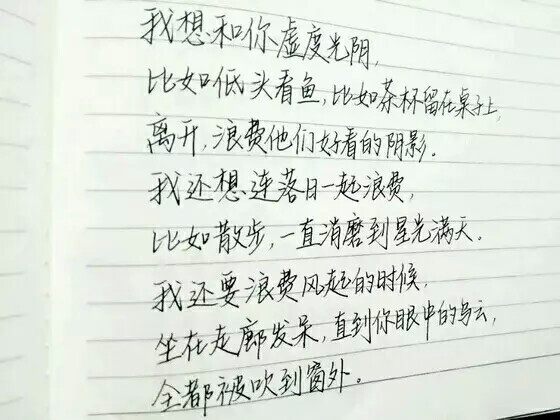 我想和你虚度光阴，
比如低头看鱼，比如茶杯留在桌子上，
离开，浪费他们好看的阴影．
我还想连落日一起浪费，
比如散步，一直消磨到星光满天．
我还要浪费风起的时候，
坐在走廊发呆，直到你眼中的乌云，
全都被吹到窗外。